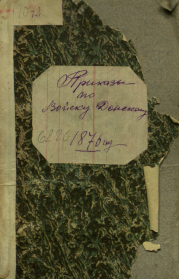 1071
Приказы
по
Войску Донскому
6126 1876 год